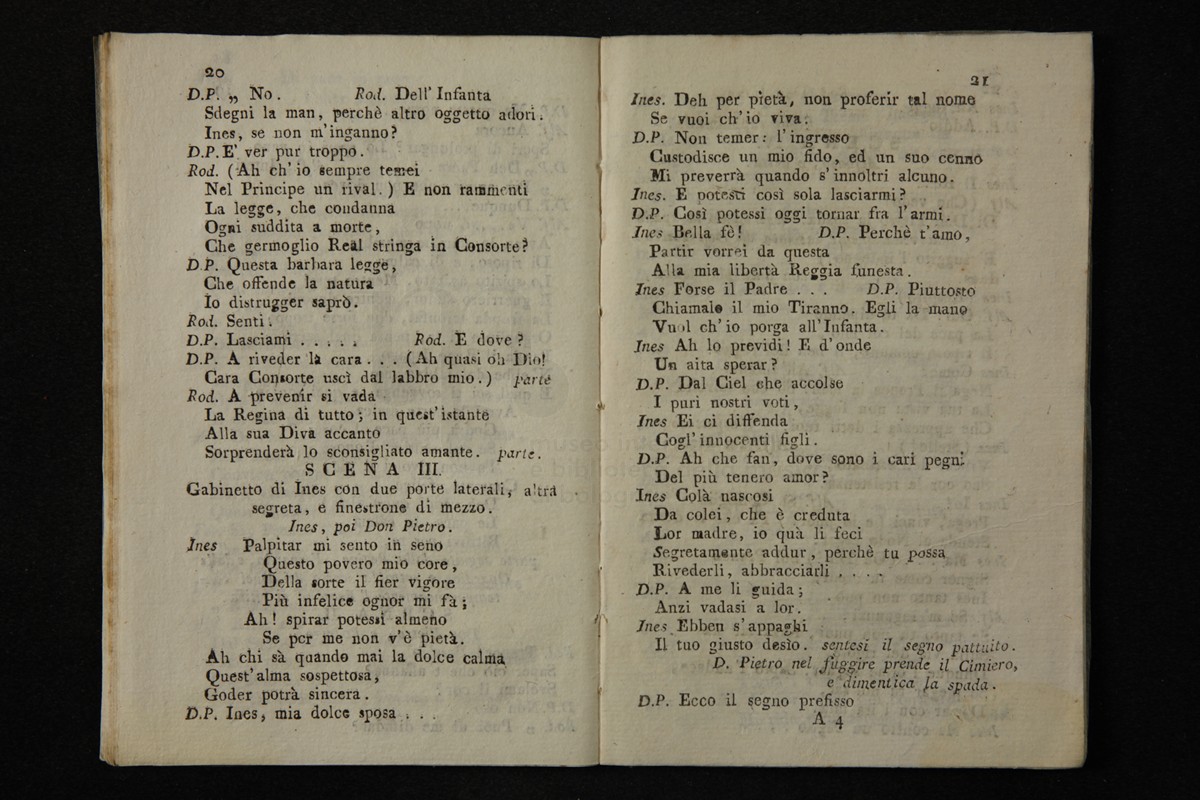 20
D.P. „ No. Rod. Dell' Infanta
Sdegni la man, perchè altro oggetto adori.
Ines, se non m'inganno?
D.P. E' ver pur troppo.
Rod. (Ah ch' io sempre temei
Nel Principe un rival.) E non rammenti
La legge, che condanna
Ogni suddita a morte,
Che germoglio Real stringa in Consorte?
D.P. Questa barbara legge,
Che offende la natura
Io distrugger saprò.
Rod. Senti.
D.P. Lasciami . . . . . Rod. E dove?
D.P. A riveder la cara . . . (Ah quasi oh Dio!
Cara Consorte uscì dal labbro mio.) parte
Rod. A prevenir si vada
La Regina di tutto; in quest'istante
Alla sua Diva accanto
Sorprenderà lo sconsigliato amante. parte.
SCENA III.
Gabinetto di Ines con due porte laterali, altra
segreta, e finestrone di mezzo.
Ines, poi Don Pietro.
Ines Palpitar mi sento in seno
Questo povero mio core,
Della sorte il fier vigore
Più infelice ognor mi fà;
Ah! spirar potessi almeno
Se per me non v'è pietà.
Ah chi sà quando mai la dolce calma
Quest'alma sospettosa,
Goder potrà sincera.
D.P. Ines, mia dolce sposa . . .
21
Ines. Deh per pietà, non proferir tal nome
Se vuoi ch'io viva.
D.P. Non temer: l'ingresso
Custodisce un mio fido, ed un suo cenno
Mi preverrà quando s'innoltri alcuno.
Ines. E potesti così sola lasciarmi?
D.P. Così potessi oggi tornar fra l'armi.
Ines Bella fè! D.P. Perchè t'amo,
Partir vorrei da questa
Alla mia libertà Reggia funesta.
Ines Forse il Padre . . . D.P. Piuttosto
Chiamalo il mio Tiranno. Egli la mano
Vuol ch'io porga all'Infanta.
Ines Ah lo previdi! E d'onde
Un aita sperar?
D.P. Dal Ciel che accolse
I puri nostri voti,
Ines Ei ci diffenda
Cogl'innocenti figli.
D.P. Ah che fan, dove sono i cari pegni
Del più tenero amor?
Ines Colà nascosi
Da colei, che è creduta
Lor madre, io quà li feci
Segretamente addur, perchè tu possa
Rivederli, abbracciarli . . . .
D.P. A me li guida;
Anzi vadasi a lor.
Ines Ebben s'appaghi
Il tuo giusto desìo. sentesi il segno pattuito.
D. Pietro nel fuggire prende il Cimiero,
e dimentica la spada.
D.P. Ecco il segno prefisso
A 4